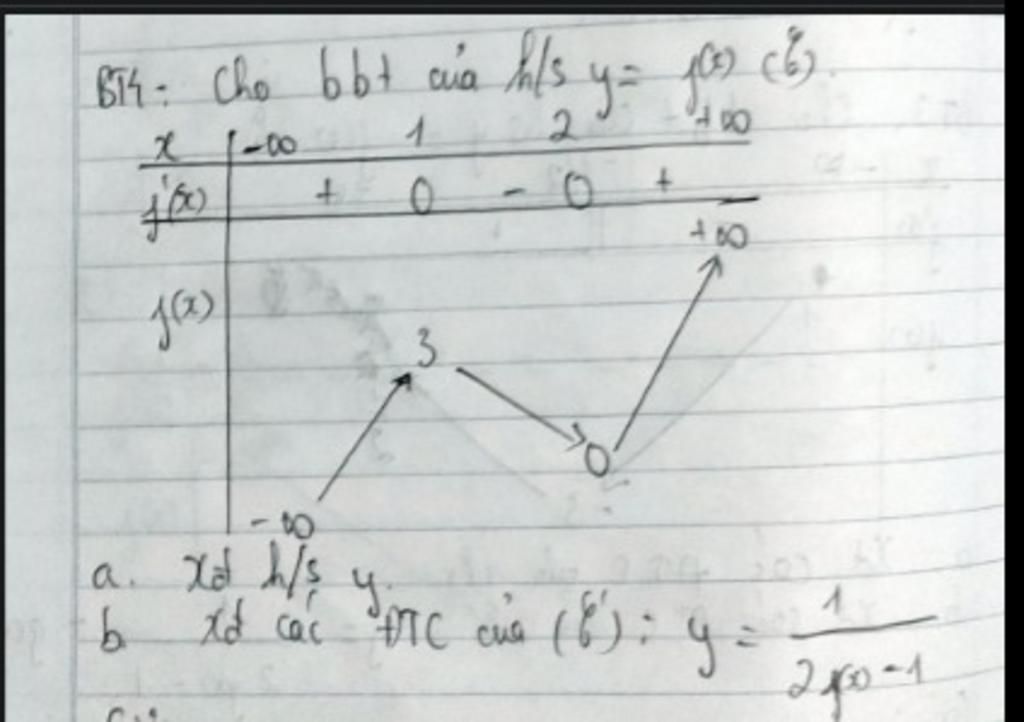 BT4: Cho bbt của h/s y = f(x) (C).
x -∞ 1 2 +∞
f'(x) + 0 - 0 +
+∞
f(x)
3
0
-∞
a. xđ h/s y.
b. xđ các ĐTC của (C'): y = 1/(2f(x) - 1)